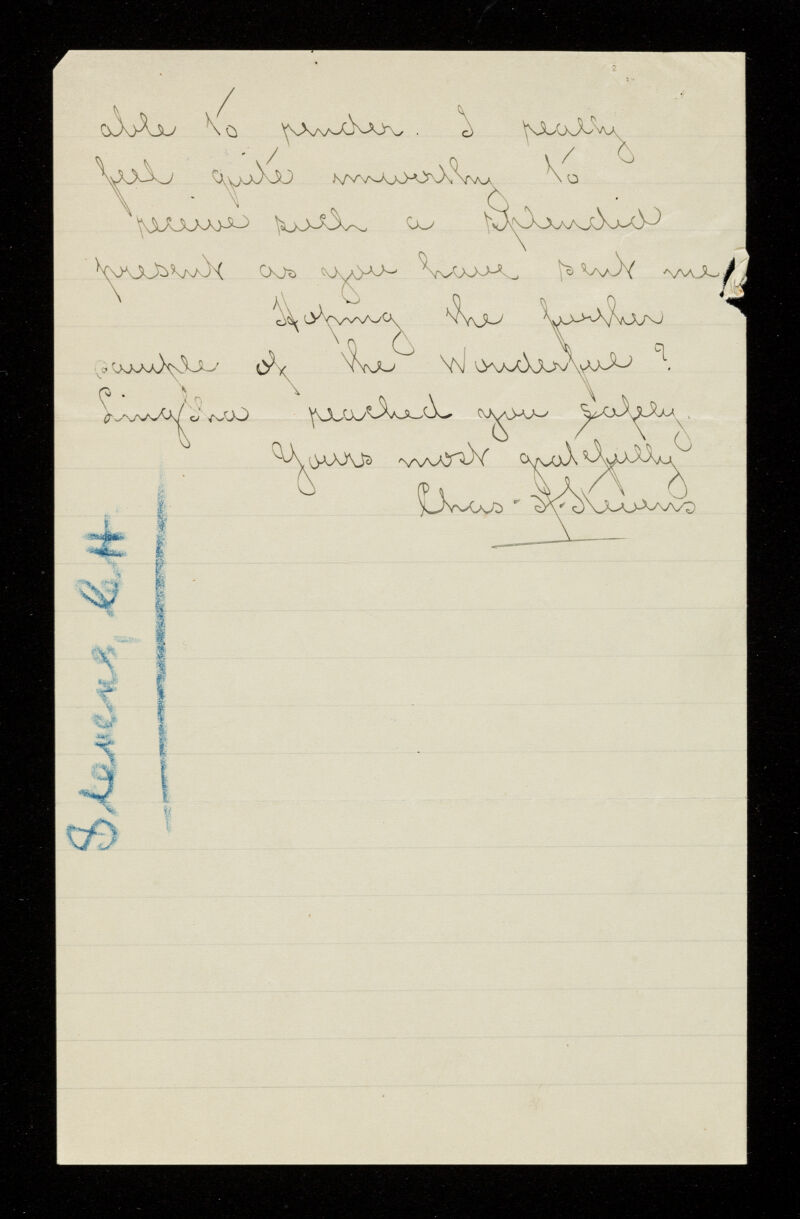 able to render. I really
feel quite unworthy to
receive such a splendid
present as you have sent me
Hoping the further
sample of the Wonderful?
reached you safely.
Yours most gratefully
Chas. H. Stevens
Stevens, C. H.